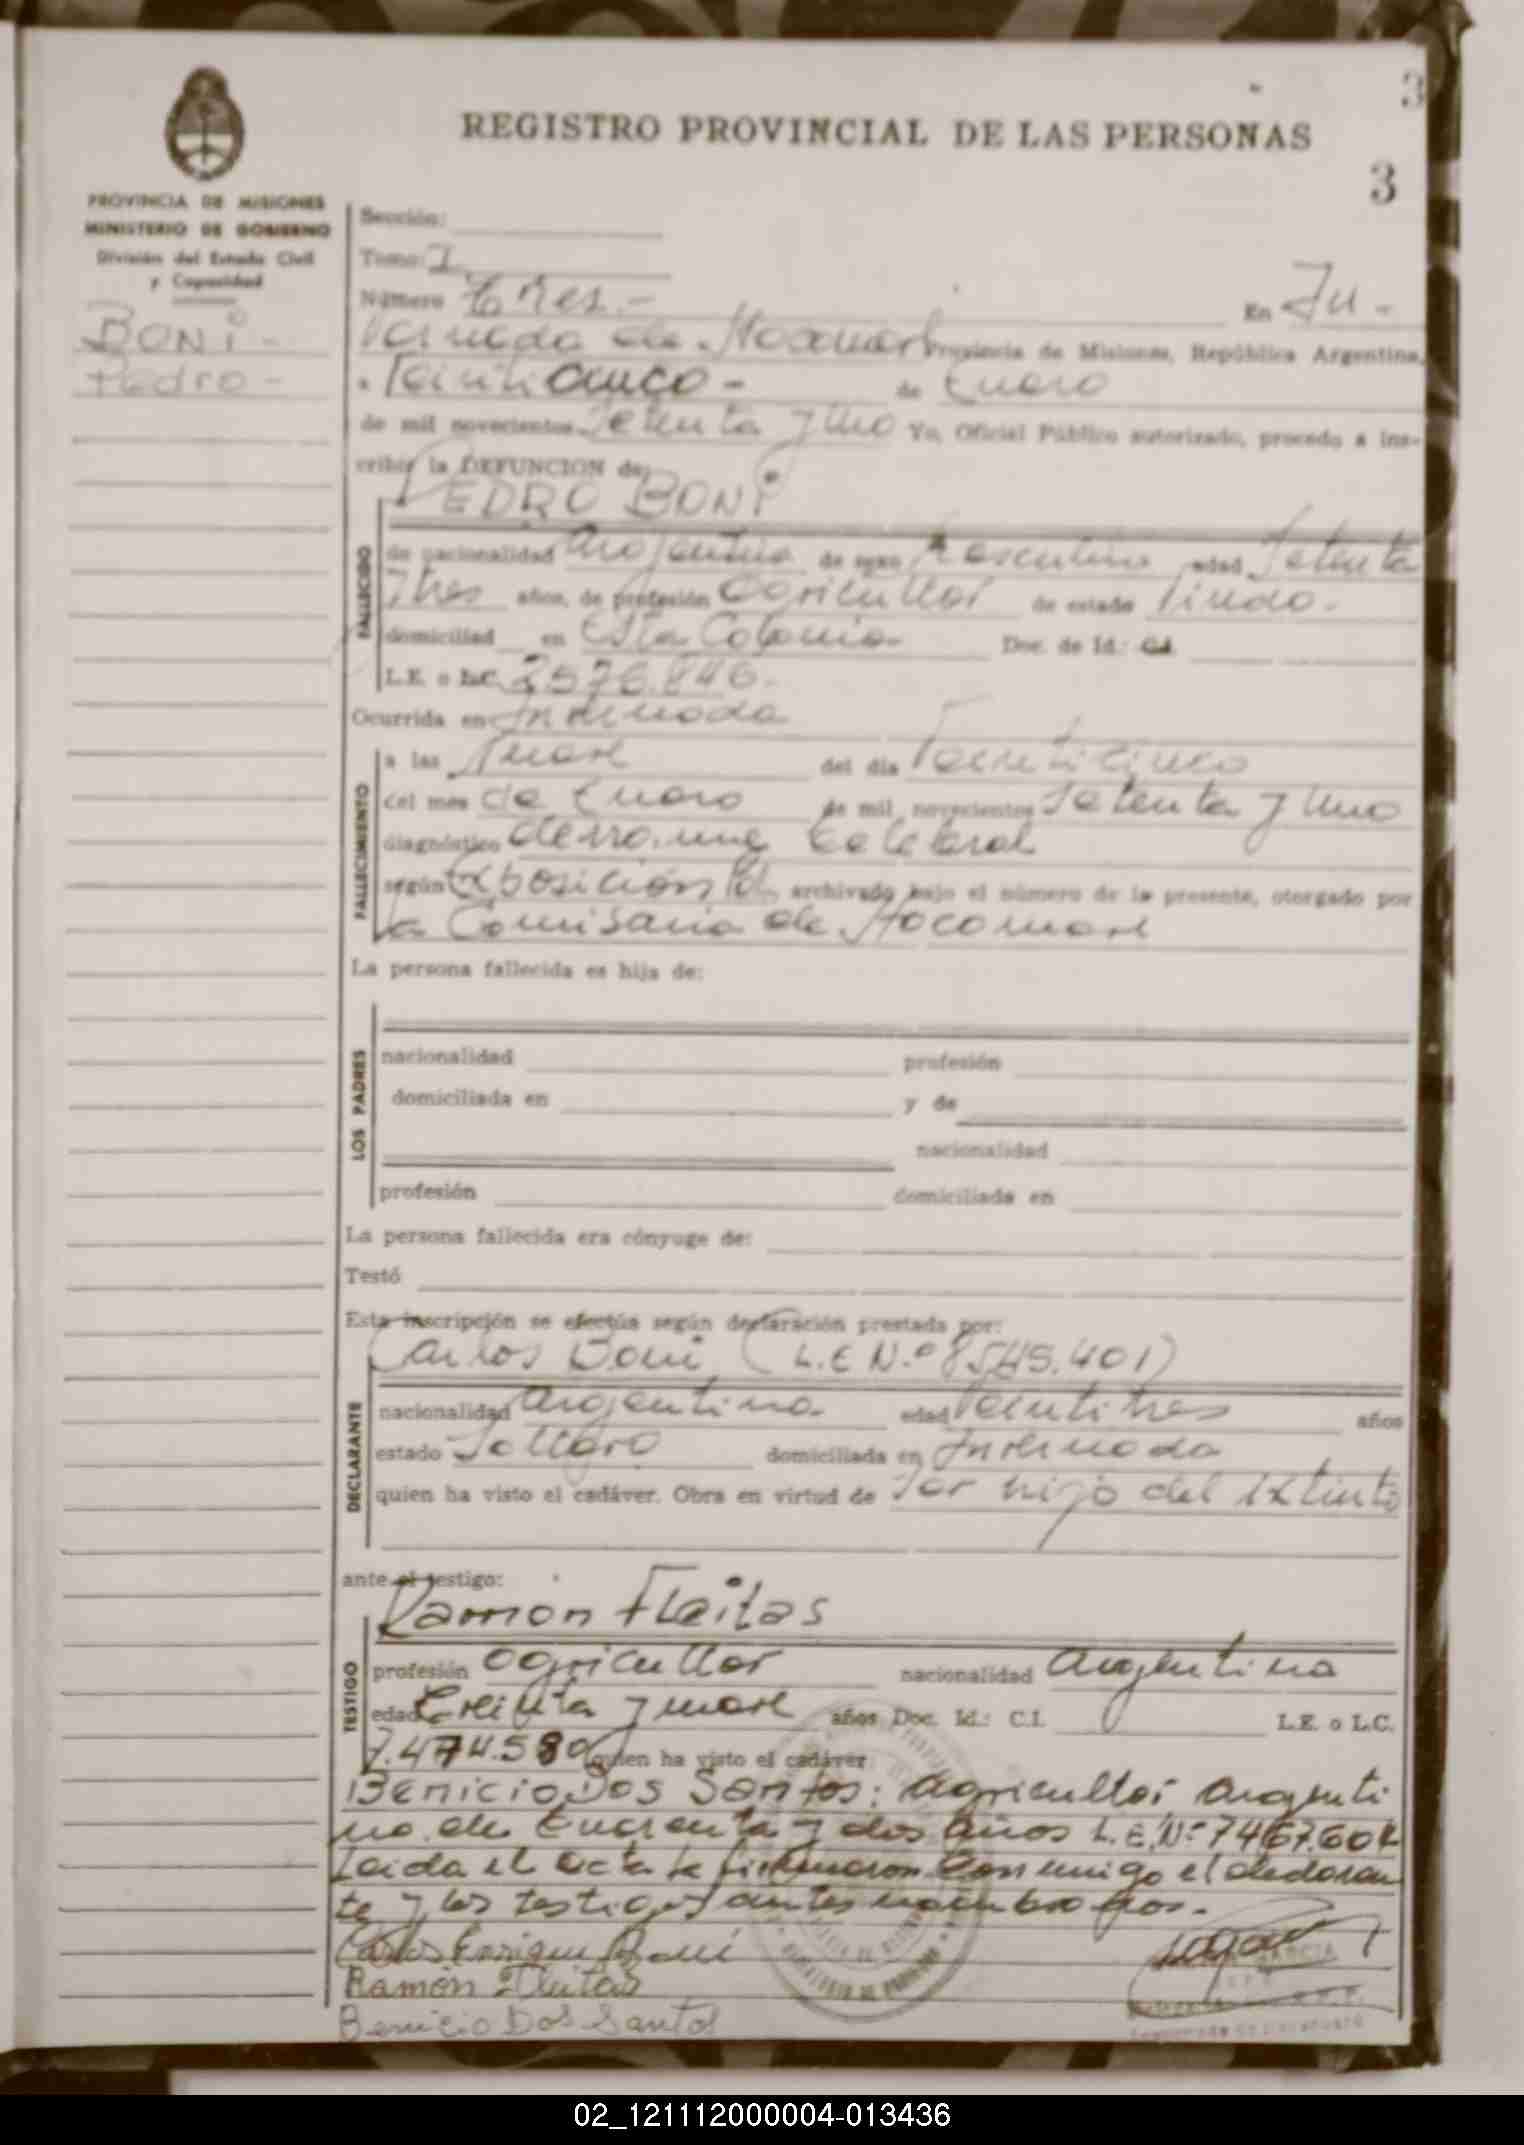 3
REGISTRO PROVINCIAL DE LAS PERSONAS
3
PROVINCIA DE MISIONES
MINISTERIO DE GOBIERNO
División del Estado Civil
y Capacidad
BONi -
Pedro -
Sección:
Tomo: I
Número Tres.- En In-
vernada de Itacaruaré Provincia de Misiones, República Argentina,
a Veinticinco - de Enero
de mil novecientos Setenta y Uno Yo, Oficial Público autorizado, procedo a ins-
cribir la DEFUNCION de:
PEDRO BONi
FALLECIDO
de nacionalidad argentina de sexo Masculino edad Setenta
Tres años, de profesión agricultor de estado Viudo.-
domiciliad en Esta Colonia- Doc. de Id.: C.I.
L.E. o L.C. 2576.846.-
Ocurrida en Invernada
FALLECIMIENTO
a las Nueve del día Veinticinco
del mes de Enero de mil novecientos Setenta y Uno
diagnóstico derrame Celebral
según Exposición Pol. archivado bajo el número de la presente, otorgado por
la Comisaria de
La persona fallecida es hija de:
LOS PADRES
nacionalidad profesión
domiciliada en y de
nacionalidad
profesión domiciliada en
La persona fallecida era cónyuge de:
Testó
Esta inscripción se efectúa según declaración prestada por:
Carlos Boni (L.E N.º 8545.401)
DECLARANTE
nacionalidad argentina edad Veintitres años
estado Soltero domiciliada en Invernada
quien ha visto el cadáver. Obra en virtud de Ser hijo del Extinto
ante el testigo:
Ramon Fleitas
TESTIGO
profesión agricultor nacionalidad argentina
edad Treinta y nueve años Doc. Id.: C.I. L.E. o L.C.
7.474.580 quien ha visto el cadáver
Benicio Dos Santos: agricultor argenti
no. de Cuarenta y dos años L.E.Nº 7467.60
Leida el acta la firmaron Conmigo el declaran
te y los testigos antes nombrados.-
Carlos Enrique Boni
Ramón Fleitas
Benicio Dos Santos
02_121112000004-013436